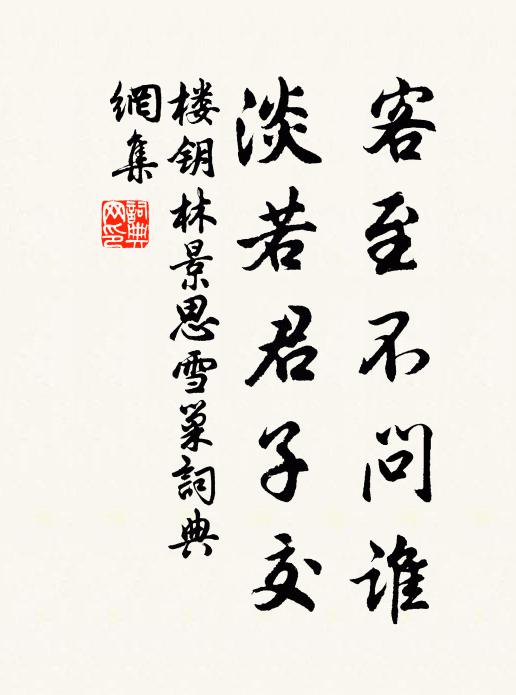 客至不问谁
淡若君子交
楼钥林景思雪巢詞典
網集
詞典
网印